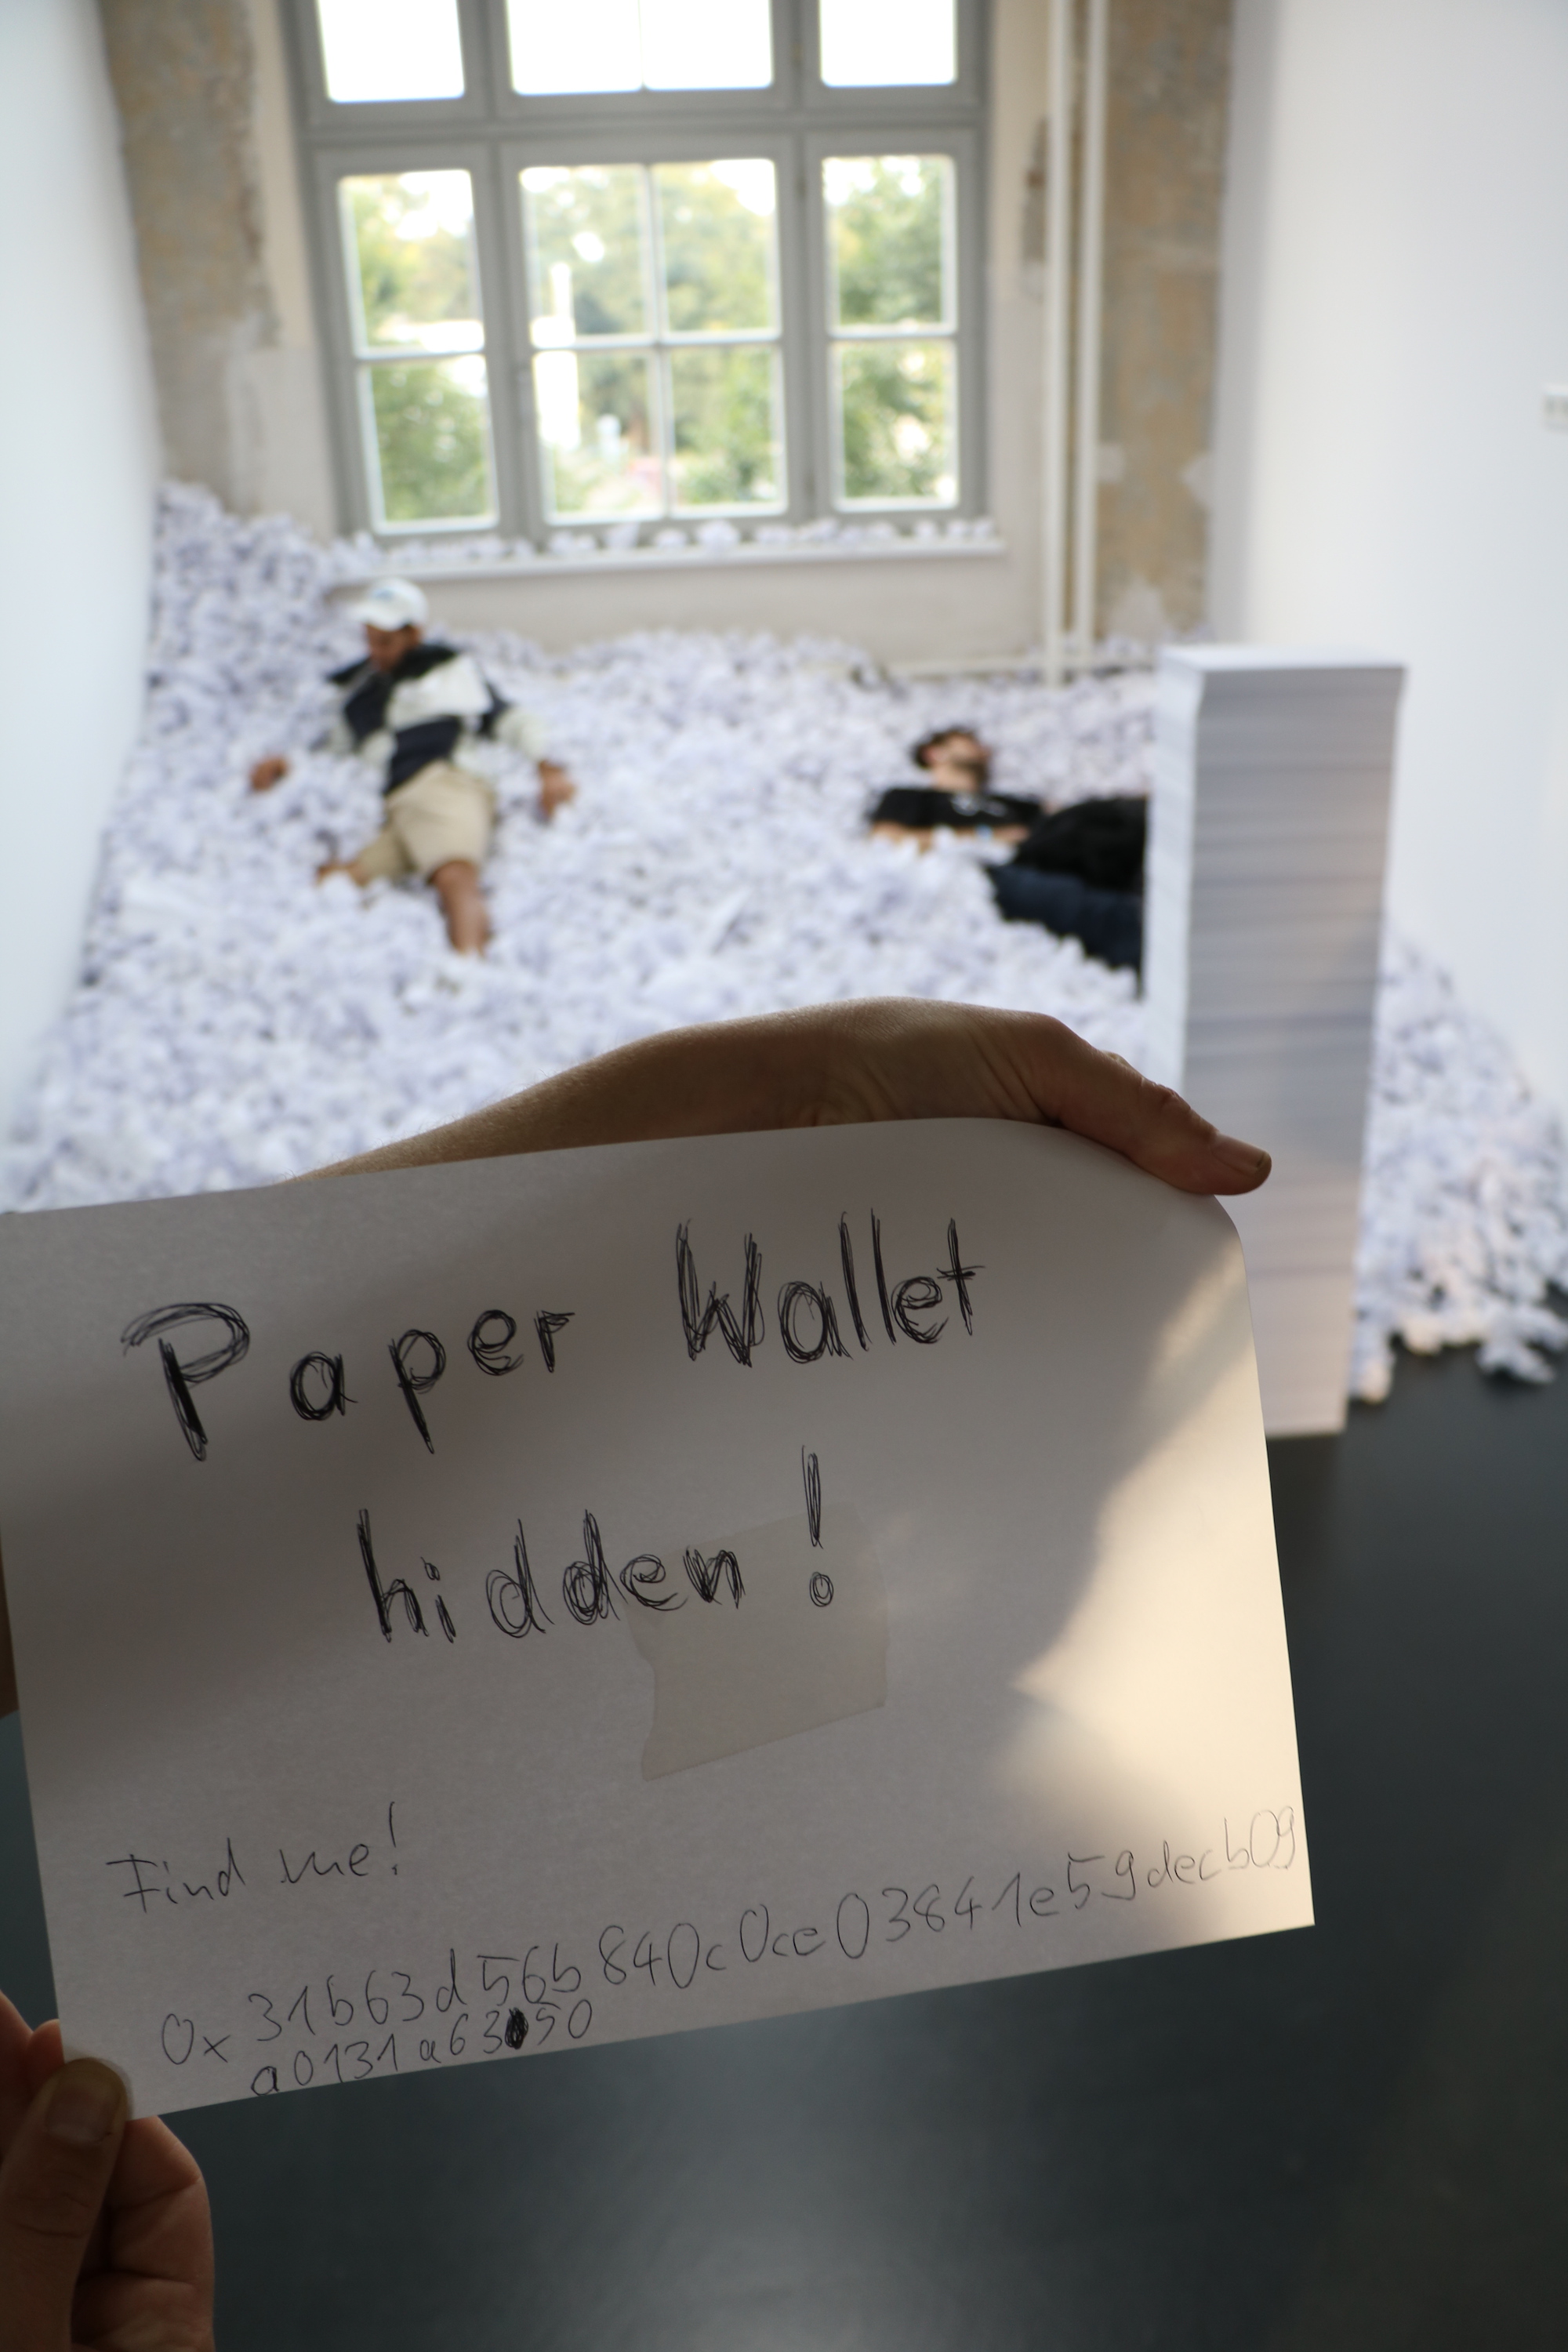 Paper Wallet
hidden!
Find me!
0x31b63d56b840c0ce03841e59decb09
a0131a6350